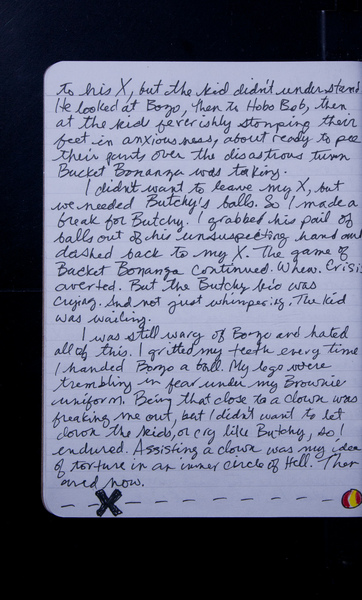 to his X, but the kid didn't understand.
He looked at Bozo, then to Hobo Bob, then
at the kids feverishly stomping their
feet in anxiousness, about ready to pee
their pants over the disastrous turn
Bucket Bonanza was taking.
I didn't want to leave my X, but
we needed Butchy's balls. So I made a
break for Butchy. I grabbed his pail of
balls out of his unsuspecting hand and
dashed back to my X. The game of
Bucket Bonanza continued. Whew. Crisis
averted. But the Butchy kid was
crying. And not just whimpering. The kid
was wailing.
I was still wary of Bozo and hated
all of this. I gritted my teeth every time
I handed Bozo a ball. My legs were
trembling in fear under my Brownie
uniform. Being that close to a clown was
freaking me out, but I didn't want to let
down the kids, or cry like Butchy, so I
endured. Assisting a clown was my idea
of torture in an inner circle of Hell. Then
and now.
X